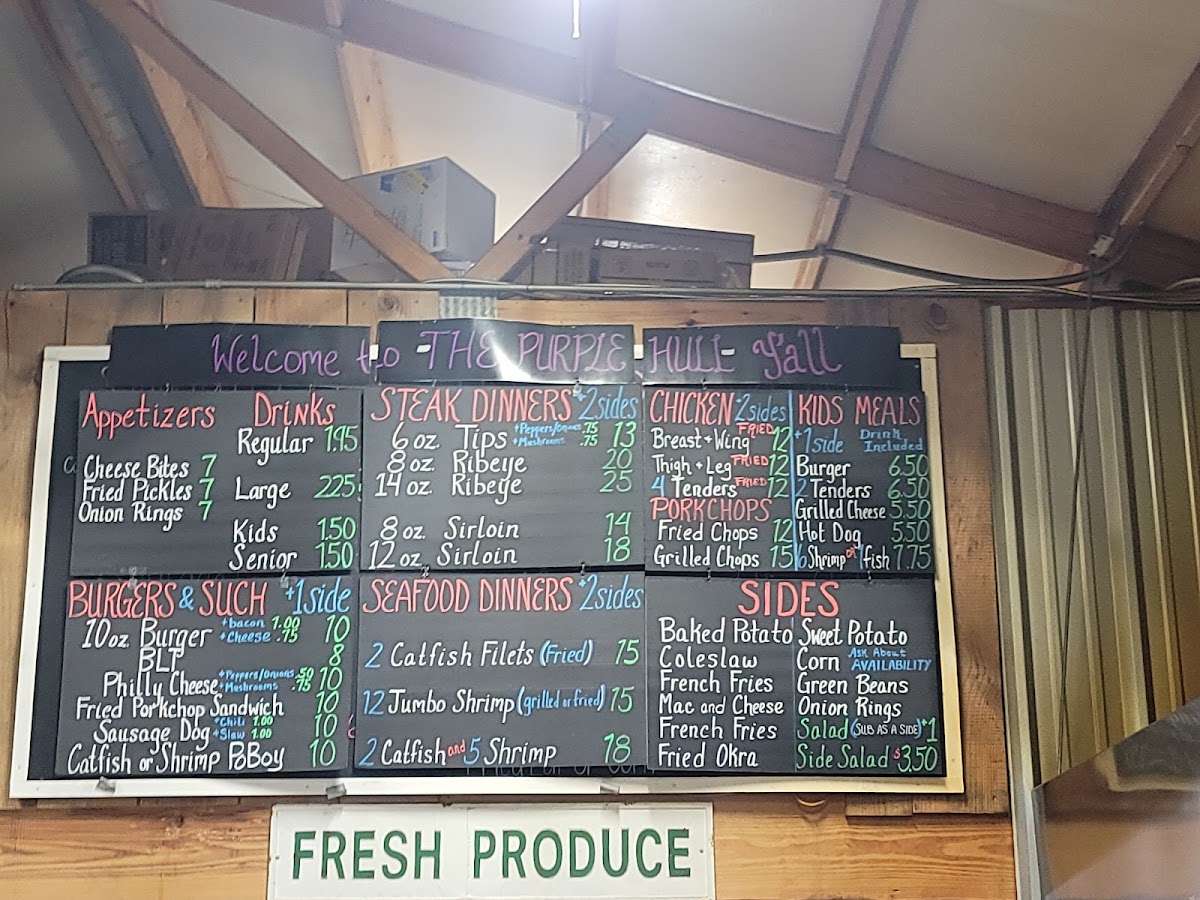 Welcome to THE PURPLE HULL Y'all
Appetizers
Cheese Bites 7
Fried Pickles 7
Onion Rings 7
Drinks
Regular 1.95
Large 2.25
Kids 1.50
Senior 1.50
STEAK DINNERS +2sides
6 oz. Tips +Peppers/Onions .75 +Mushrooms .75 13
8 oz. Ribeye 20
14 oz. Ribeye 25
8 oz. Sirloin 14
12 oz. Sirloin 18
CHICKEN 2sides
Breast + Wing FRIED 12
Thigh + Leg FRIED 12
4 Tenders FRIED 12
PORKCHOPS
Fried Chops 12
Grilled Chops 15
KIDS MEALS
+1 side Drink Included
Burger 6.50
2 Tenders 6.50
Grilled Cheese 5.50
Hot Dog 5.50
6 Shrimp or 1 fish 7.75
BURGERS & SUCH +1side
10 oz. Burger +bacon 1.00 +Cheese .75 10
BLT 8
Philly Cheese +Peppers/Onions .50 +Mushrooms .75 10
Fried Porkchop Sandwich 10
Sausage Dog +Chili 1.00 +Slaw 1.00 10
Catfish or Shrimp PoBoy 10
SEAFOOD DINNERS +2sides
2 Catfish Filets (Fried) 15
12 Jumbo Shrimp (grilled or fried) 15
2 Catfish and 5 Shrimp 18
SIDES
Baked Potato
Coleslaw
French Fries
Mac and Cheese
French Fries
Fried Okra
Sweet Potato
Corn Ask About AVAILABILITY
Green Beans
Onion Rings
Salad (SUB AS A SIDE) +1
Side Salad $3.50
FRESH PRODUCE